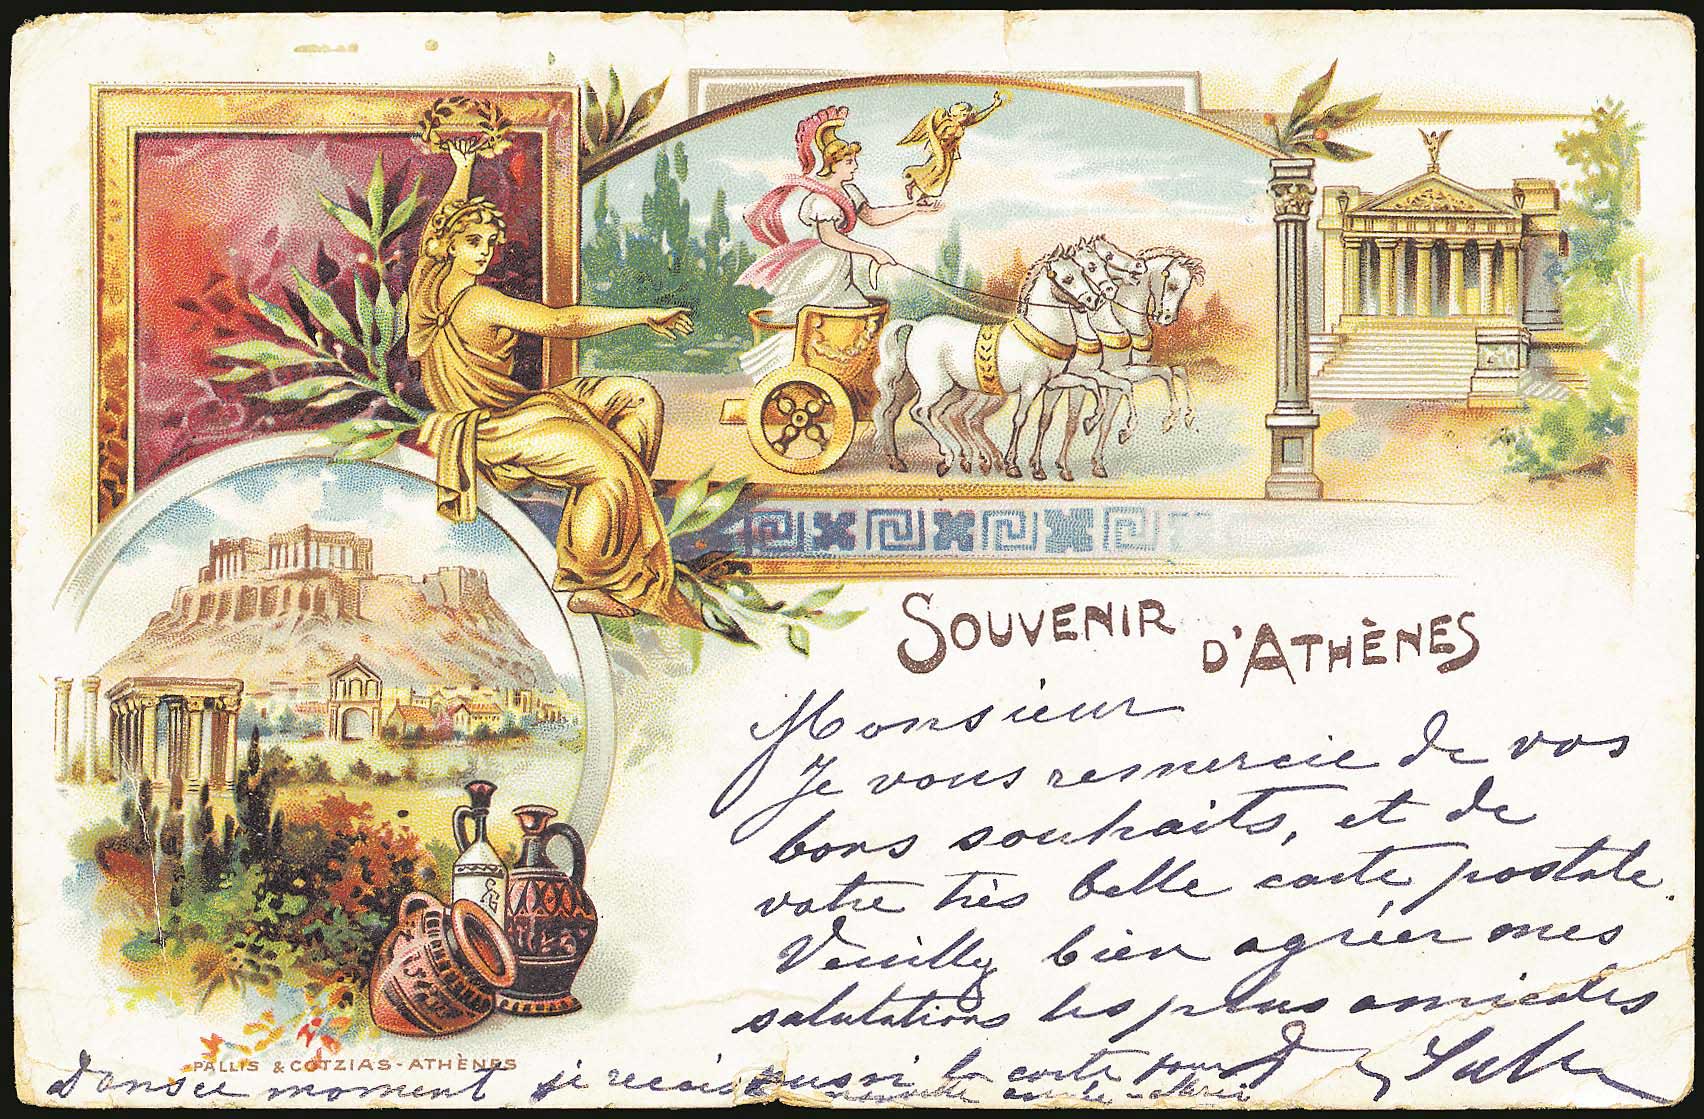 SOUVENIR D'ATHÈNES
Monsieur
Je vous remercie de vos
bons souhaits, et de
votre très belle carte postale.
Veuilly bien agréer mes
salutations les plus amicales
PALLIS & COTZIAS - ATHÈNES
Dans ce moment je reçois aussi la carte pour
nouvelle année - Merci